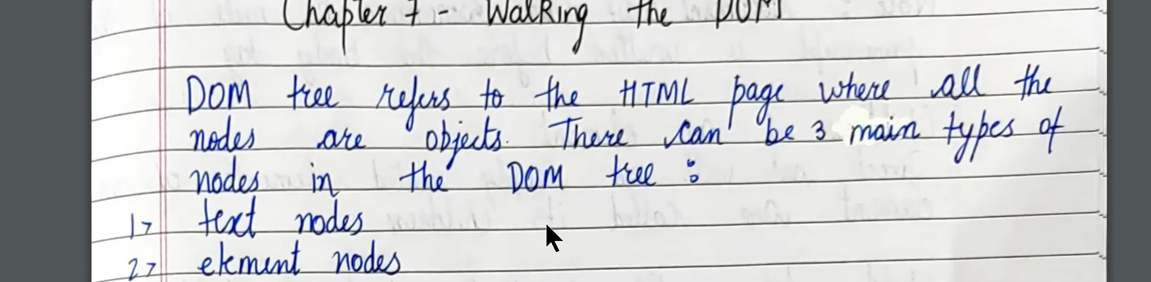 Chapter 7 - Walking the DOM
DOM tree refers to the HTML page where all the
nodes are objects. There can be 3 main types of
nodes in the DOM tree :
1> text nodes
2> element nodes